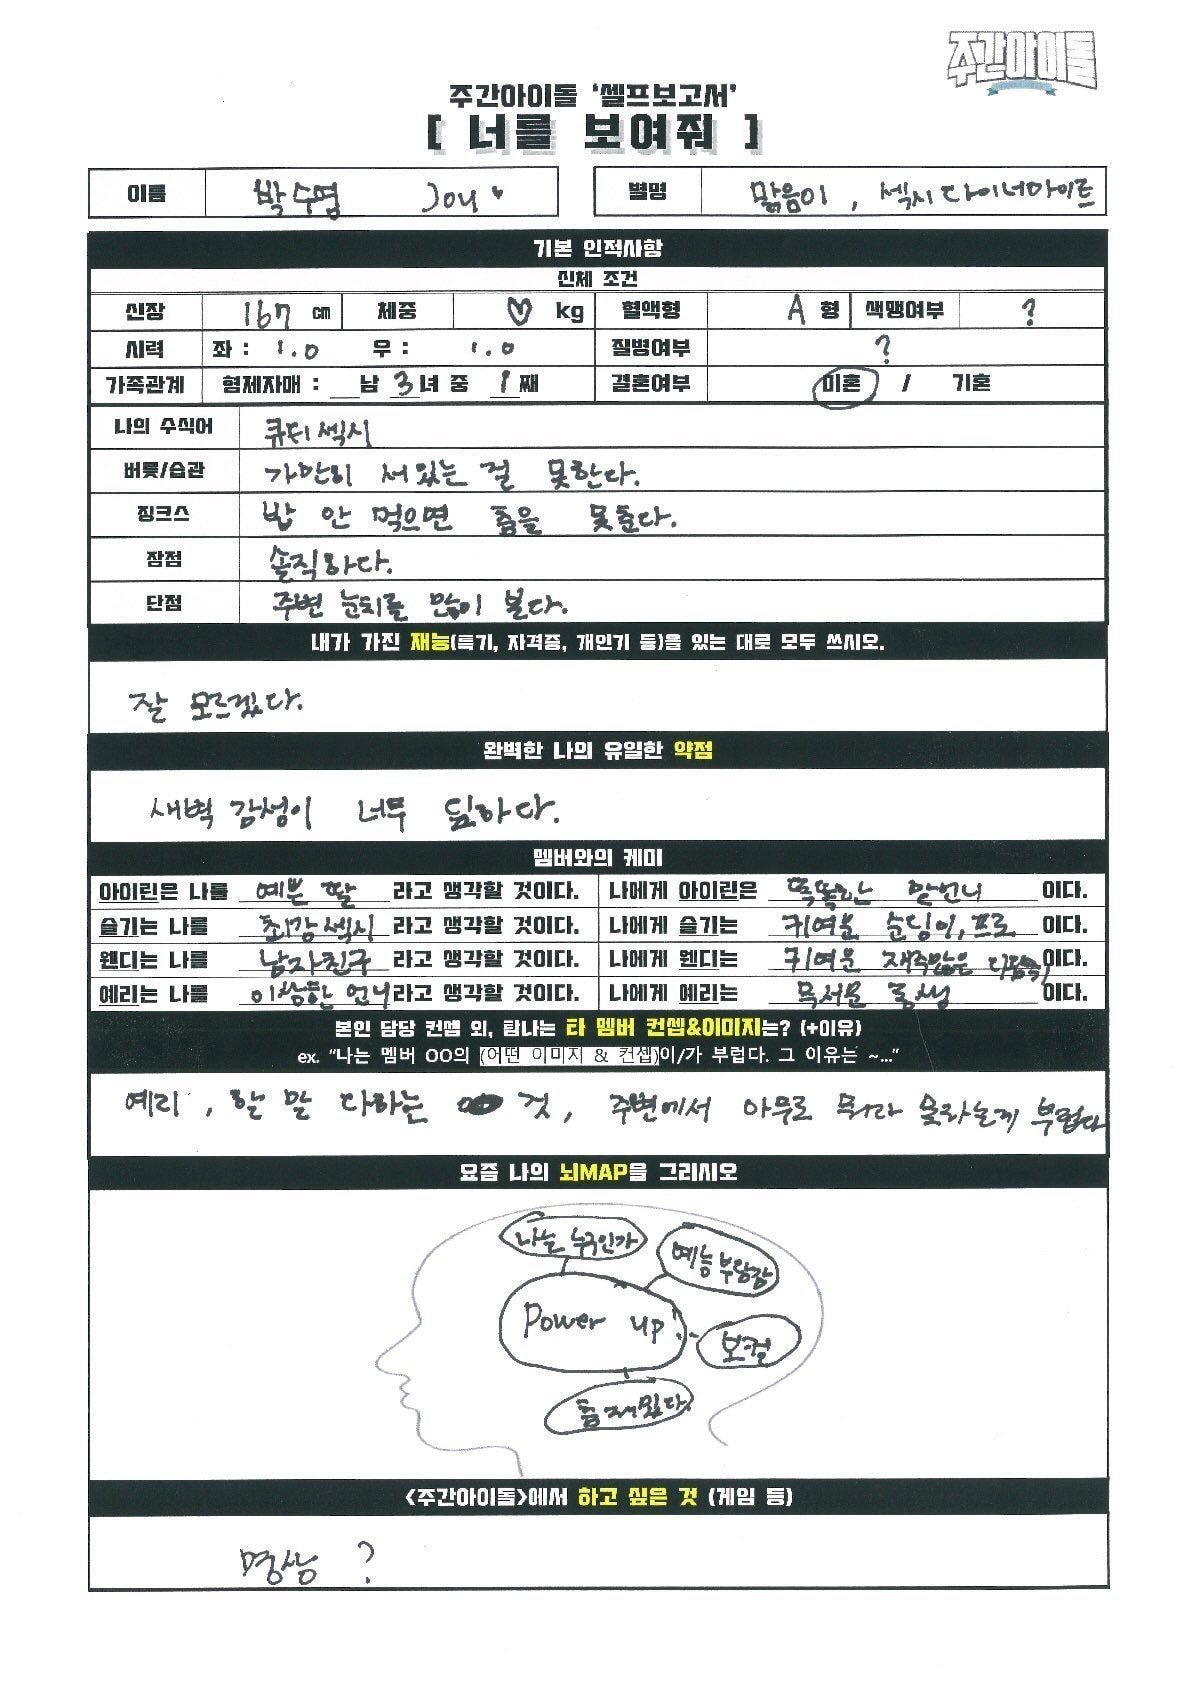 주간아이돌
주간아이돌 '셀프보고서'
[ 너를 보여줘 ]
이름 박수영 Joy 별명 맑음이, 섹시다이너마이트
기본 인적사항
신체 조건
신장 167 cm 체중 ♡ kg 혈액형 A 형 색맹여부 ?
시력 좌 : 1.0 우 : 1.0 질병여부 ?
가족관계 형제자매 : __남 3녀 중 1째 결혼여부 미혼 / 기혼
나의 수식어 큐티섹시
버릇/습관 가만히 서있는 걸 못한다.
징크스 밥 안 먹으면 춤을 못춘다.
장점 솔직하다.
단점 주변 눈치를 많이 본다.
내가 가진 재능(특기, 자격증, 개인기 등)을 있는 대로 모두 쓰시오.
잘 모르겠다.
완벽한 나의 유일한 약점
새벽 감성이 너무 딥하다.
멤버와의 케미
아이린은 나를 예쁜 딸 라고 생각할 것이다. 나에게 아이린은 똑똑한 맏언니 이다.
슬기는 나를 최강섹시 라고 생각할 것이다. 나에게 슬기는 귀여운 순딩이, 프로 이다.
웬디는 나를 남자친구 라고 생각할 것이다. 나에게 웬디는 귀여운 재주많은 다람쥐 이다.
예리는 나를 이상한 언니 라고 생각할 것이다. 나에게 예리는 무서운 동생 이다.
본인 담당 컨셉 외, 탐나는 타 멤버 컨셉&이미지는? (+이유)
ex. "나는 멤버 OO의 (어떤 이미지 & 컨셉)이/가 부럽다. 그 이유는 ~..."
예리, 할 말 다하는 것, 주변에서 아무도 뭐라 못하는게 부럽다
요즘 나의 뇌MAP을 그리시오
나는 누구인가
예능부랑감
Power up!
보컬
춤 재밌다.
<주간아이돌>에서 하고 싶은 것 (게임 등)
명상 ?